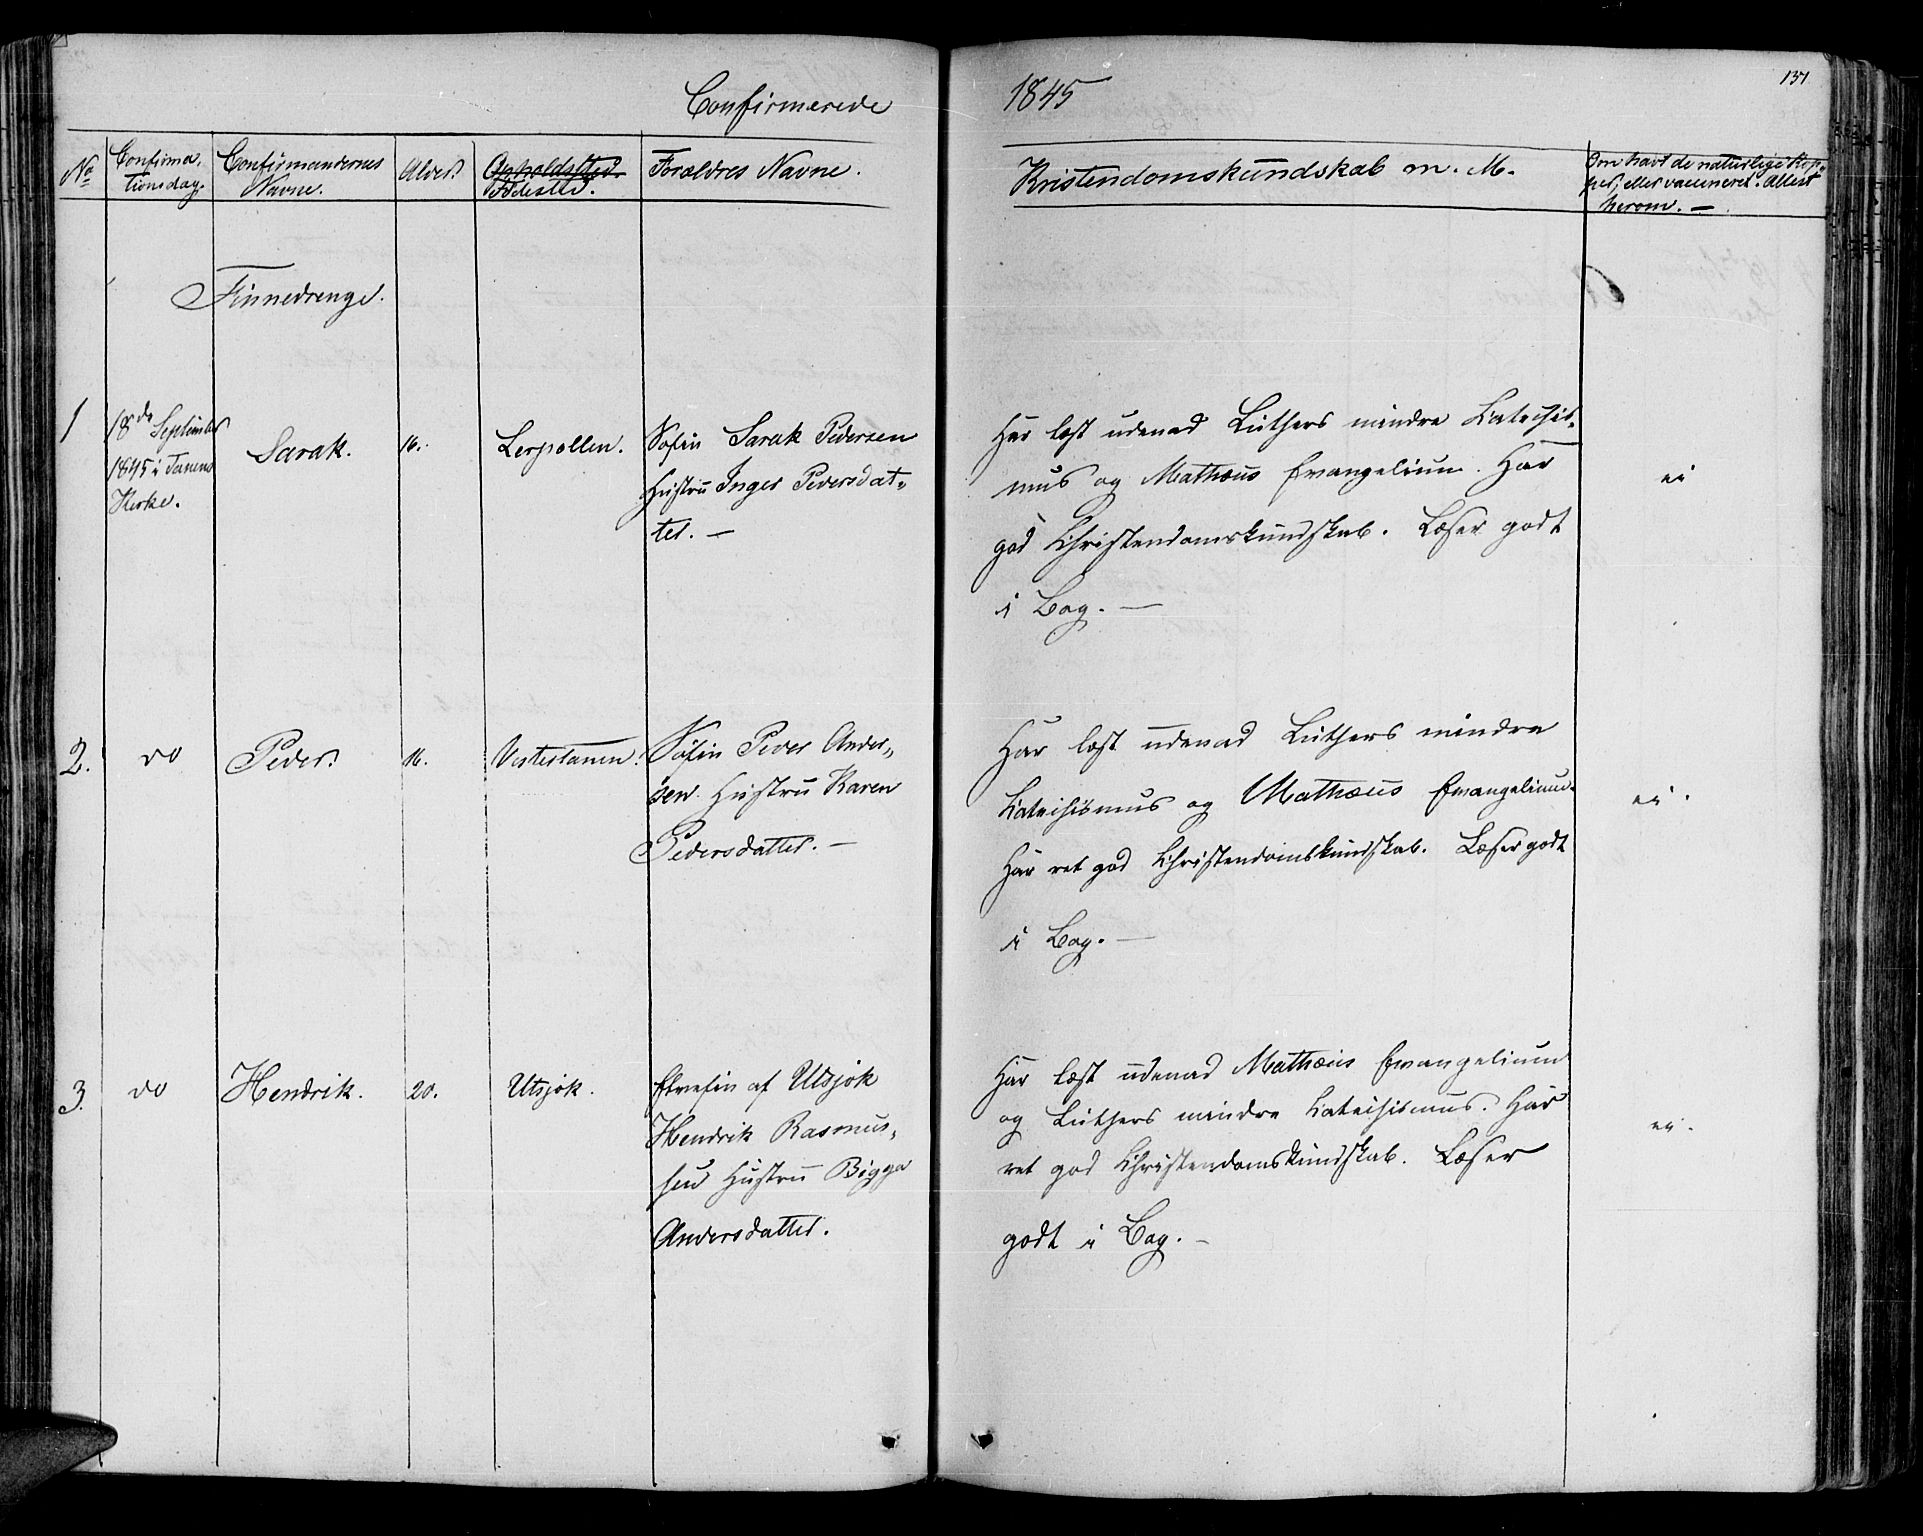 Confirmerede
1845
131
No
Confirma-
tionsdag.
Confirmandernes
Navne.
Alder.
Opholdsted
Fødested.
Forældres Navne.
Kristendomskundskab m. M.
Om havt de naturlige Kop-
per, eller vaccineret. Attest
herom. —
Finnedrenge.
1
18de September
1845 i Tanens
Kirke.
Sarak.
16.
Lerpollen.
Søfin Sarak Pedersen
Hustru Inger Pedersdat-
ter. —
Har læst udenad Luthers mindre Catechis-
mus og Mathæus Evangelium. Har
god Christendomskundskab. Læser godt
i Bog. —
ei
2.
do
Peder.
16.
Vestertanen.
Søfin Peder Ander-
sen. Hustru Karen
Pedersdatter. —
Har læst udenad Luthers mindre
Catechismus og Mathæus Evangelium.
Har ret god Christendomskundskab. Læser godt
i Bog. —
ei.
3.
do
Hendrik.
20.
Utsjok.
Elvefin af Utsjok
Hendrik Rasmus-
sen Hustru Bigga
Andersdatter.
Har læst udenad Mathæus Evangelium
og Luthers mindre Catechismus. Har
ret god Christendomskundskab. Læser
godt i Bog. —
ei.